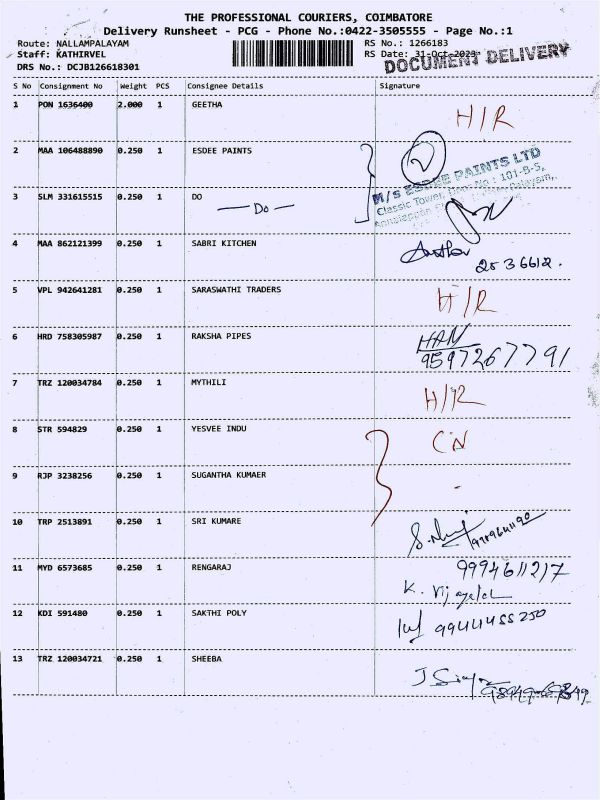 THE PROFESSIONAL COURIERS, COIMBATORE
Delivery Runsheet - PCG - Phone No.:0422-3505555 - Page No.:1
Route: NALLAMPALAYAM
Staff: KATHIRVEL
DRS No.: DCJB126618301
RS No.: 1266183
RS Date: 31-Oct-2023
DOCUMENT DELIVERY
S No Consignment No Weight PCS Consignee Details Signature
1 PON 1636400 2.000 1 GEETHA H/R
2 MAA 106488890 0.250 1 ESDEE PAINTS
M/s ESDEE PAINTS LTD
Classic Tower, Door No : 101-B-5,
3 SLM 331615515 0.250 1 DO
— Do —
4 MAA 862121399 0.250 1 SABRI KITCHEN
2536612.
5 VPL 942641281 0.250 1 SARASWATHI TRADERS H/R
6 HRD 758305987 0.250 1 RAKSHA PIPES HAN
9597267791
7 TRZ 120034784 0.250 1 MYTHILI H/R
8 STR 594829 0.250 1 YESVEE INDU CN
9 RJP 3238256 0.250 1 SUGANTHA KUMAER
10 TRP 2513891 0.250 1 SRI KUMARE
11 MYD 6573685 0.250 1 RENGARAJ 9994611217
12 KDI 591480 0.250 1 SAKTHI POLY 9944455250
13 TRZ 120034721 0.250 1 SHEEBA